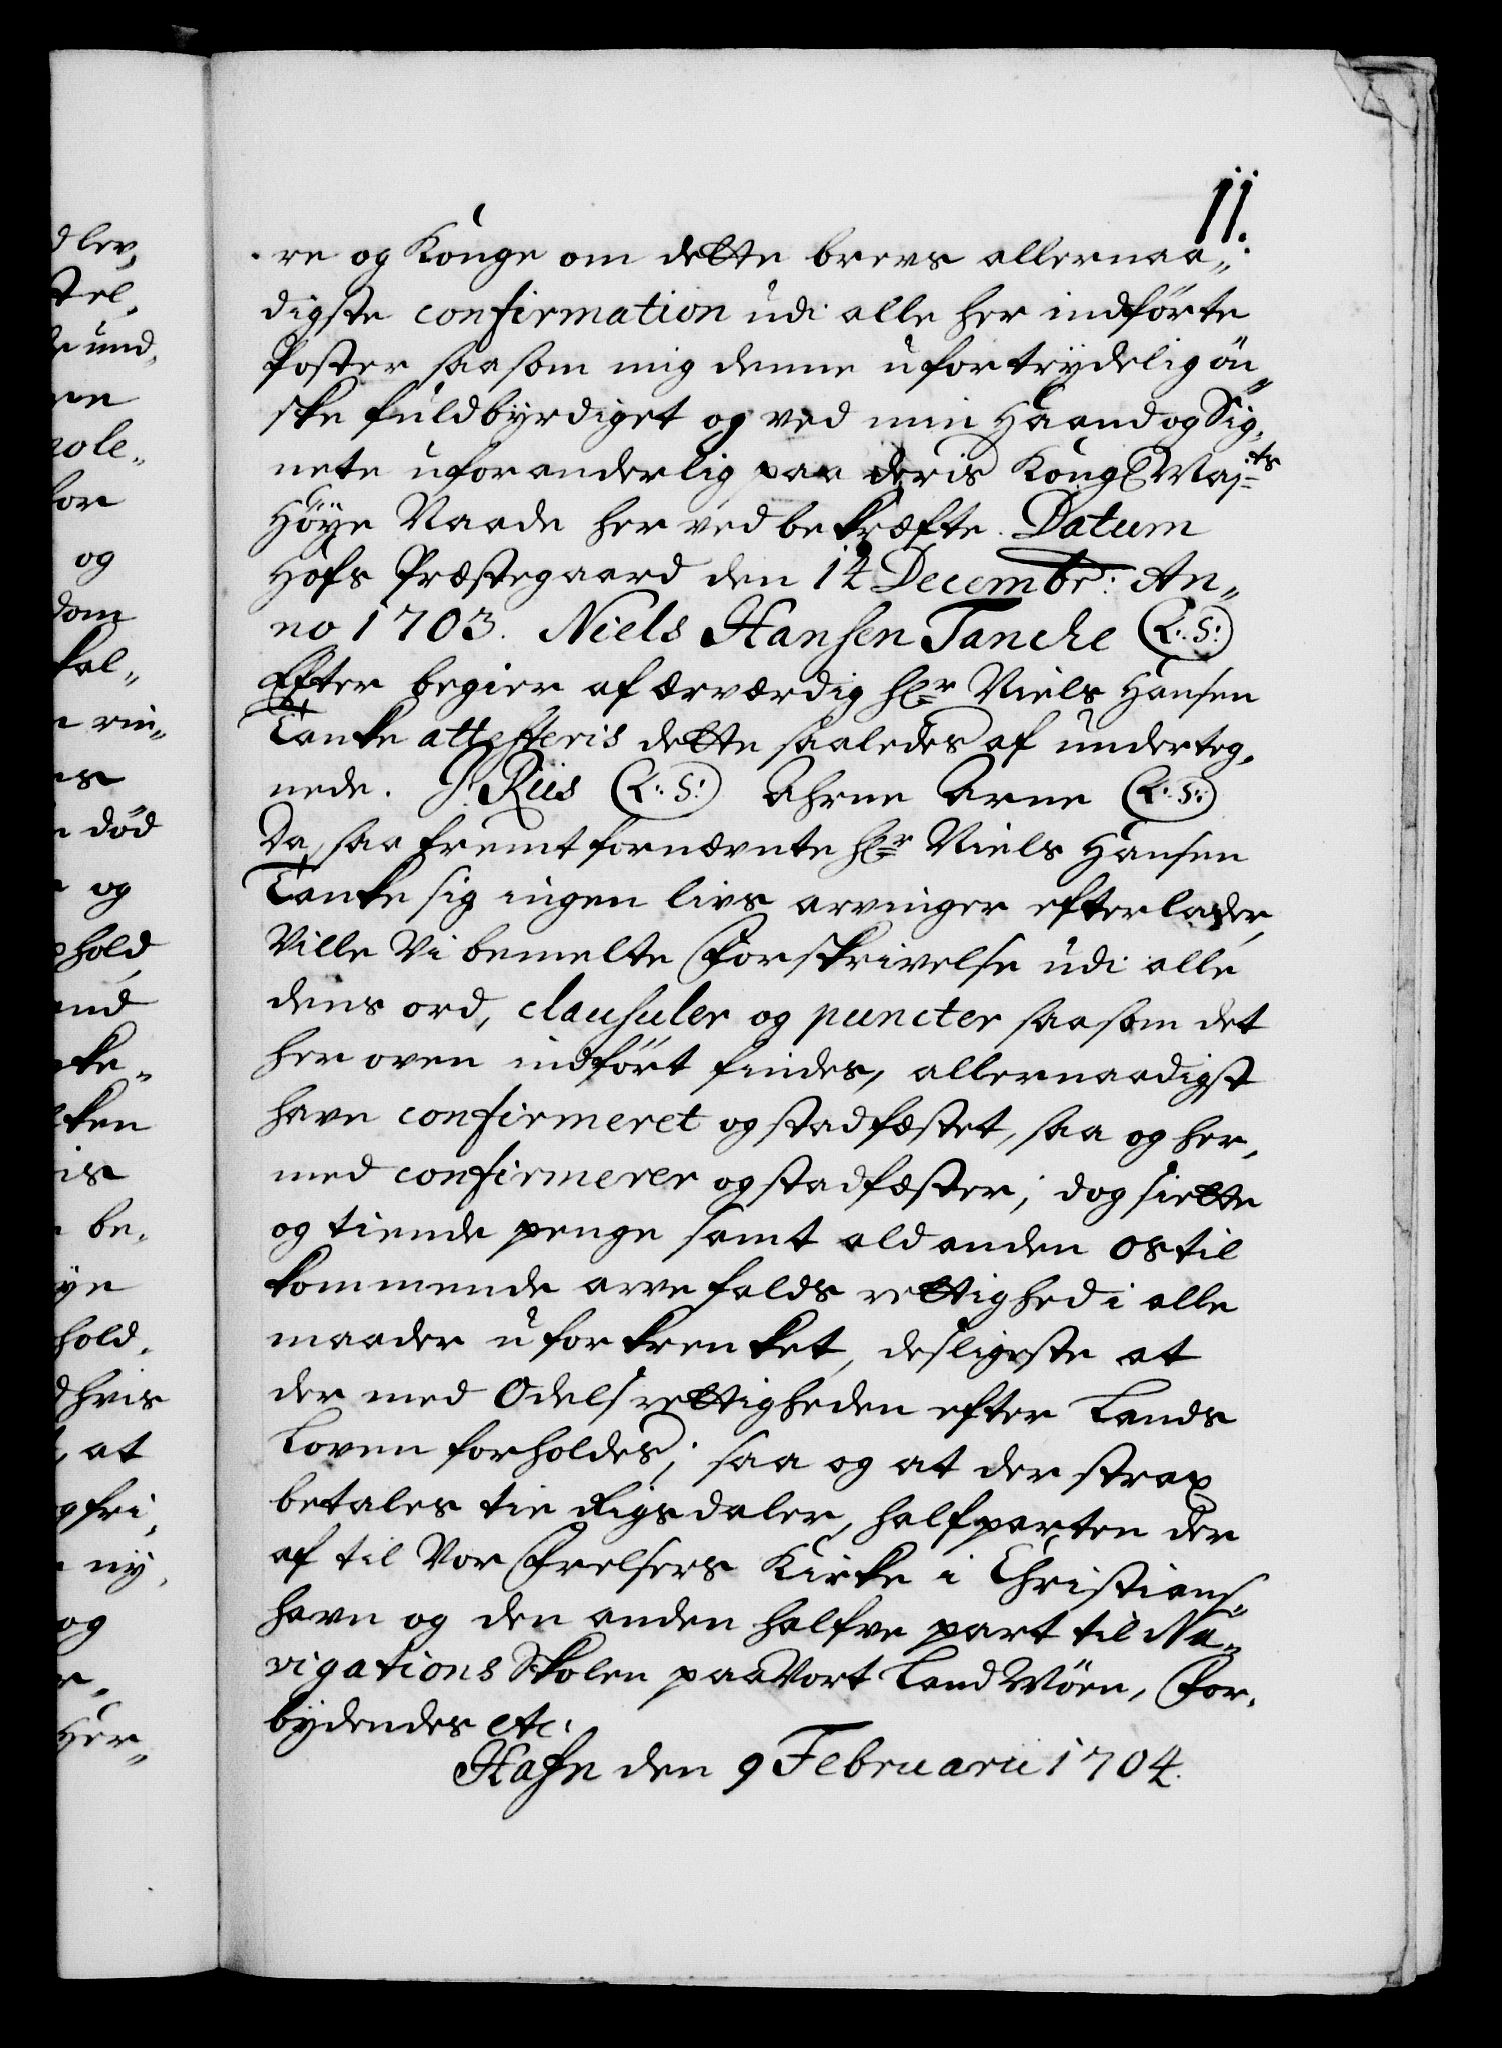 11.
re og Konge om dette brevs allernaa„
digste confirmation udi alle her indførte
Poster saasom mig denne ufortrydelig øn„
ske fuldbyrdiget og ved min Haand og Sig„
nete uforanderlig paa deris Kongl Maj:ts
Høÿe Naade her ved bekræfte. Datum
Hofs Præstegaard den 14 Decembr: An„
no 1703. Niels Hansen Tanche (L.S:)
Efter begier af ærværdig hr Niels Hansen
Tanke attesteris dette saaledes af underteg„
nede. J. Riis (L.S:) Ahrne Arne (L.S:)
Da, saa fremt fornævnte hr Niels Hansen
Tanke sig ingen livs arvinger efterlader,
Ville Vi bemelte Forskrivelse udi alle
dens ord, clausuler og puncter saasom det
her oven indført findes, allernaadigst
have confirmeret og stadfæstet, saa og her„
med confirmerer og stadfæster; dog siette
og tiende penge samt ald anden os til
kommende arve falds rettighed i alle
maader uforkrenket, desligeste at
der med Odels rettigheden efter Lands
Loven forholdes; saa og at der strax
betales tie Rigsdaler, halfparten der
af til Vor Frelsers Kirke i Christians„
havn og den anden halfve part til Na„
vigations Skolen paa Vort Land Møen, For„
bydendes etc:
Hafn den 9 Februarii 1704.
dlev„
stel„
und„
og
død
og
hold
be„
hold„
hvis
at
ny„
og